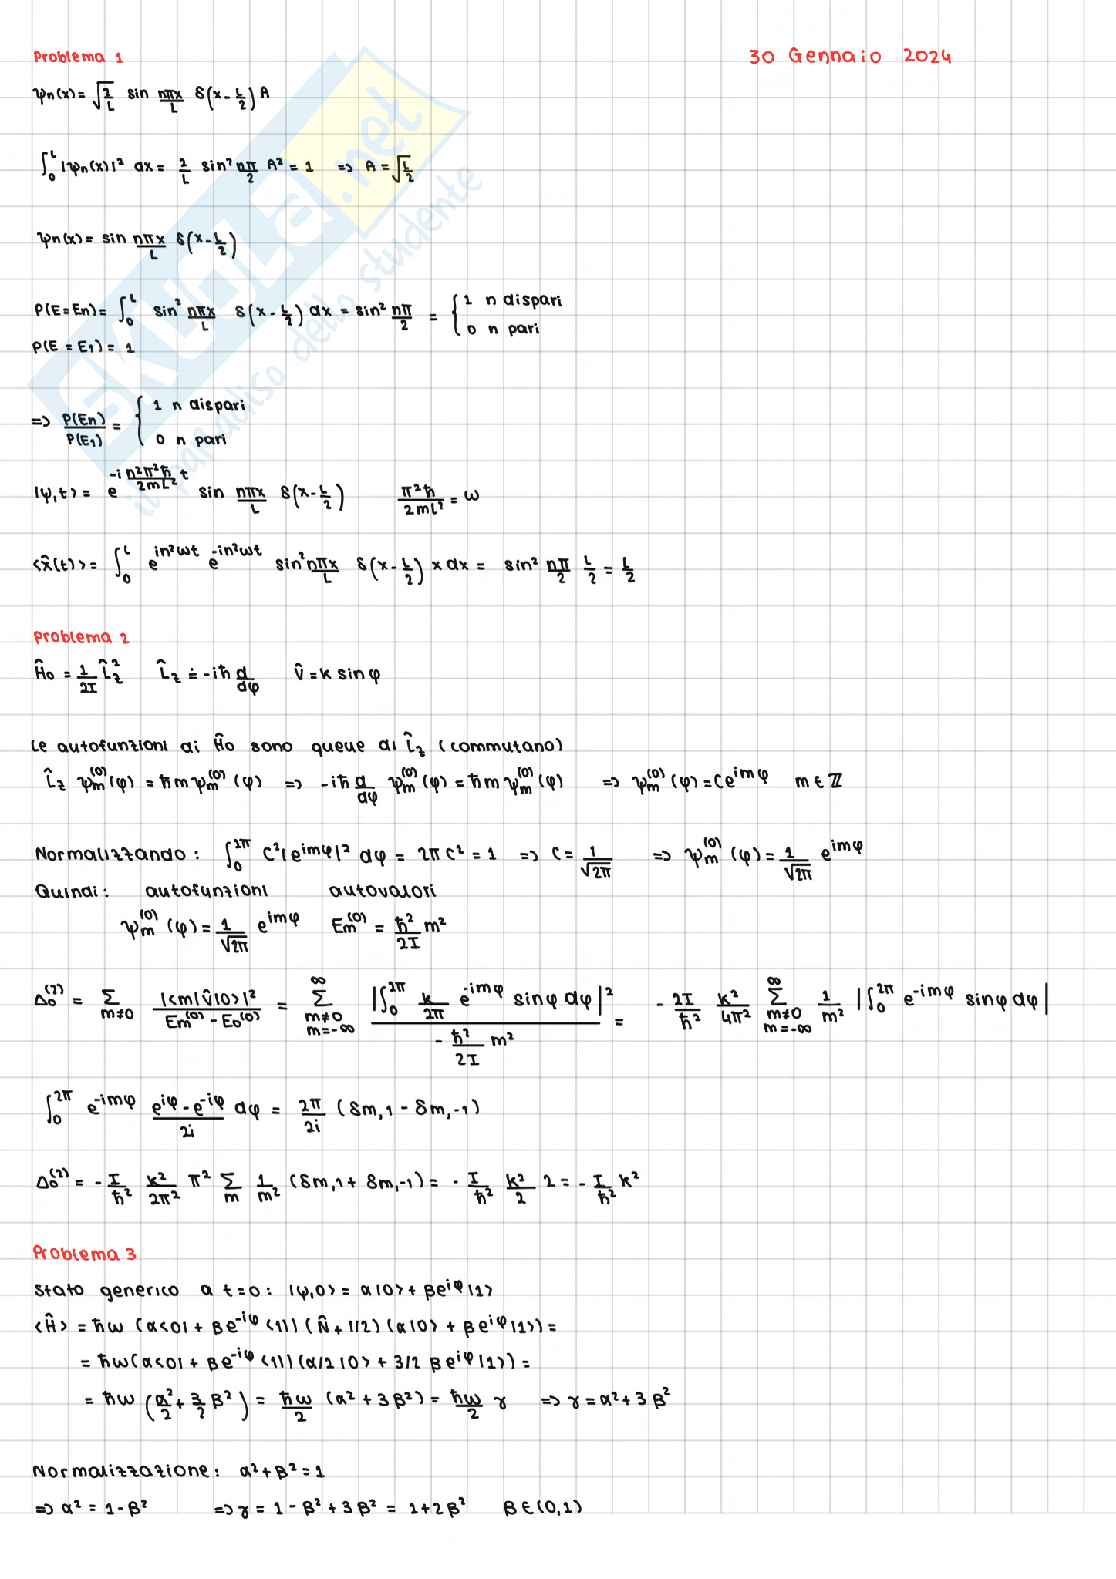 Problema 1
30 Gennaio 2024
ψn(x) = √(2/L) sin nπx/L δ(x - L/2) A
∫₀ᴸ |ψn(x)|² dx = 2/L sin² nπ/2 A² = 1 => A = √(L/2)
ψn(x) = sin nπx/L δ(x - L/2)
P(E=En) = ∫₀ᴸ sin² nπx/L δ(x - L/2) dx = sin² nπ/2 = { 1 n dispari
0 n pari
P(E = E₁) = 1
=> P(En)/P(E₁) = { 1 n dispari
0 n pari
|ψ,t> = e^(-i n²π²ħ/2mL² t) sin nπx/L δ(x - L/2) π²ħ/2mL² = ω
<x̂(t)> = ∫₀ᴸ e^(in²ωt) e^(-in²ωt) sin² nπx/L δ(x - L/2) x dx = sin² nπ/2 L/2 = L/2
Problema 2
Ĥ₀ = 1/2I L̂z² L̂z ≐ -iħ d/dφ V̂ = k sinφ
Le autofunzioni di Ĥ₀ sono queue di L̂z (commutano)
L̂z ψm⁽⁰⁾(φ) = ħm ψm⁽⁰⁾(φ) => -iħ d/dφ ψm⁽⁰⁾(φ) = ħm ψm⁽⁰⁾(φ) => ψm⁽⁰⁾(φ) = C e^(imφ) m ∈ ℤ
Normalizzando: ∫₀^2π C² |e^(imφ)|² dφ = 2π C² = 1 => C = 1/√2π => ψm⁽⁰⁾(φ) = 1/√2π e^(imφ)
Quindi: autofunzioni autovalori
ψm⁽⁰⁾(φ) = 1/√2π e^(imφ) Em⁽⁰⁾ = ħ²/2I m²
Δ₀⁽²⁾ = Σ m≠0 |<m|V̂|0>|²/(Em⁽⁰⁾ - E₀⁽⁰⁾) = Σ^∞ m≠0 m=-∞ |∫₀^2π k/2π e^(-imφ) sinφ dφ|²/(-ħ²/2I m²) = -2I/ħ² k²/4π² Σ^∞ m≠0 m=-∞ 1/m² |∫₀^2π e^(-imφ) sinφ dφ|
∫₀^2π e^(-imφ) (e^(iφ) - e^(-iφ))/2i dφ = 2π/2i (δm,1 - δm,-1)
Δ₀⁽²⁾ = - I/ħ² k²/2π² π² Σ m 1/m² (δm,1 + δm,-1) = - I/ħ² k²/2 2 = - I/ħ² k²
Problema 3
Stato generico a t=0: |ψ,0> = α|0> + βe^(iφ)|1>
<Ĥ> = ħω (α<0| + βe^(-iφ) <1|) (N̂ + 1/2) (α|0> + βe^(iφ)|1>) =
= ħω (α<0| + βe^(-iφ) <1|) (α/2 |0> + 3/2 βe^(iφ)|1>) =
= ħω (α²/2 + 3/2 β²) = ħω/2 (α² + 3β²) = ħω/2 γ => γ = α² + 3β²
Normalizzazione: α² + β² = 1
=> α² = 1 - β² => γ = 1 - β² + 3β² = 1 + 2β² β ∈ (0,1)
SKUOLA.net
il paradiso dello studente